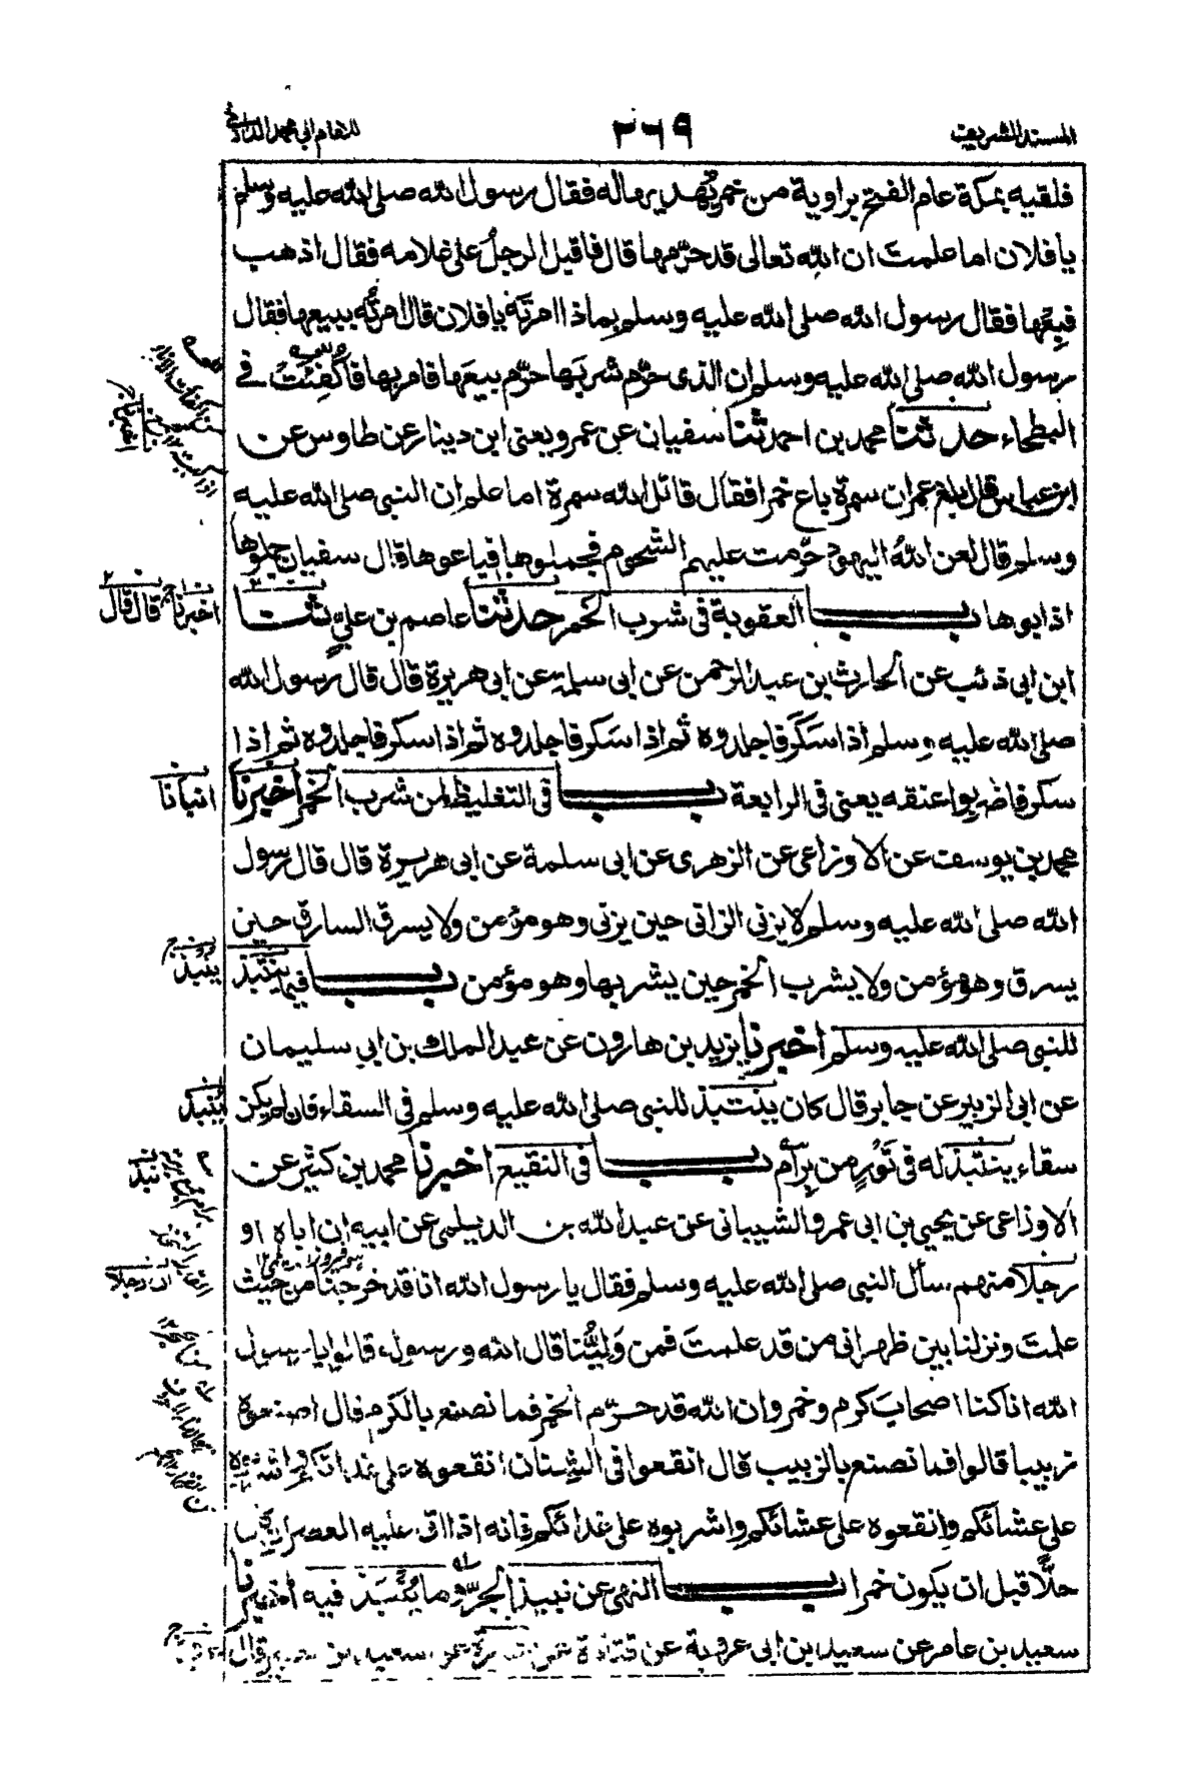 المسند الشريف
٢٦٩
للامام ابى محمد الدارمى
فلقيه بمكة عام الفتح براوية من خمر يُهديها له فقال رسول الله صلى الله عليه وسلم
يا فلان اما علمتَ ان الله تعالى قد حرّمها قال فاقبل الرجلُ على غلامه فقال اذهب
فبِعْها فقال رسول الله صلى الله عليه وسلم بماذا امرتَه يا فلان قال امرتُه ببيعها فقال
رسول الله صلى الله عليه وسلم ان الذى حرّم شربَها حرّم بيعَها فامر بها فاكفِئَتْ فى
البطحاء حدثنا محمد بن احمد ثنا سفيان عن عمرو يعنى ابن دينار عن طاوس عن
ابن عباس قال بلغ عمر ان سمرة باع خمرا فقال قاتل الله سمرة اما علم ان النبى صلى الله عليه
وسلم قال لعن اللهُ اليهود حُرّمت عليهم الشحوم فجملوها فباعوها قال سفيان جملوها
اذابوها باب العقوبة فى شرب الخمر حدثنا عاصم بن علىّ ثنا
اخبرنا
قال قال
ابن ابى ذئب عن الحارث بن عبد الرحمن عن ابى سلمة عن ابى هريرة قال قال رسول الله
صلى الله عليه وسلم اذا سَكَرَ فاجلدوه ثم اذا سكر فاجلدوه ثم اذا سكر فاجلدوه ثم اذا
سكر فاضربوا عنقه يعنى فى الرابعة باب فى التغليظ لمن شرب الخمر اخبرنا
انبأنا
محمد بن يوسف عن الاوزاعى عن الزهرى عن ابى سلمة عن ابى هريرة قال قال رسول
الله صلى الله عليه وسلم لا يزنى الزانى حين يزنى وهو مؤمن ولا يسرق السارق حين
يسرق وهو مؤمن ولا يشرب الخمر حين يشربها وهو مؤمن باب فيما ينتبذ
يُنبَذ
للنبى صلى الله عليه وسلم اخبرنا يزيد بن هارون عن عبد الملك بن ابى سليمان
عن ابى الزبير عن جابر قال كان ينتبذ للنبى صلى الله عليه وسلم فى السقاء فان لم يكن
يُنبذ
سقاء ينتبذ له فى تَوْرٍ من بِرام باب فى النقيع اخبرنا محمد بن كثير عن
نبذ
الاوزاعى عن يحيى بن ابى عمرو الشيبانى عن عبد الله بن الديلمى عن ابيه ان اباه او
رجلا منهم سأل النبى صلى الله عليه وسلم فقال يا رسول الله انا قد خرجنا من حيث
ان رجلا
علمتَ ونزلنا بين ظهرانى من قد علمتَ فمن وَلِيُّنا قال الله ورسوله قالوا يا رسول
الله انا كنا اصحابَ كرم وخمر وان الله قد حرّم الخمر فما نصنع بالكرم قال اصنعوه
زبيبا قالوا فما نصنع بالزبيب قال انقعوا فى الشِنان انقعوه على غدائكم واشربوه
على عشائكم وانقعوه على عشائكم واشربوه على غدائكم فانه اذا اتى عليه العصران كان
حلًّا قبل ان يكون خمرا باب النهى عن نبيذ الجرّ وما يُنتَبَذ فيه اخبرنا
سعيد بن عامر عن سعيد بن ابى عروبة عن قتادة عن عزرة عن سعيد بن جبير قال